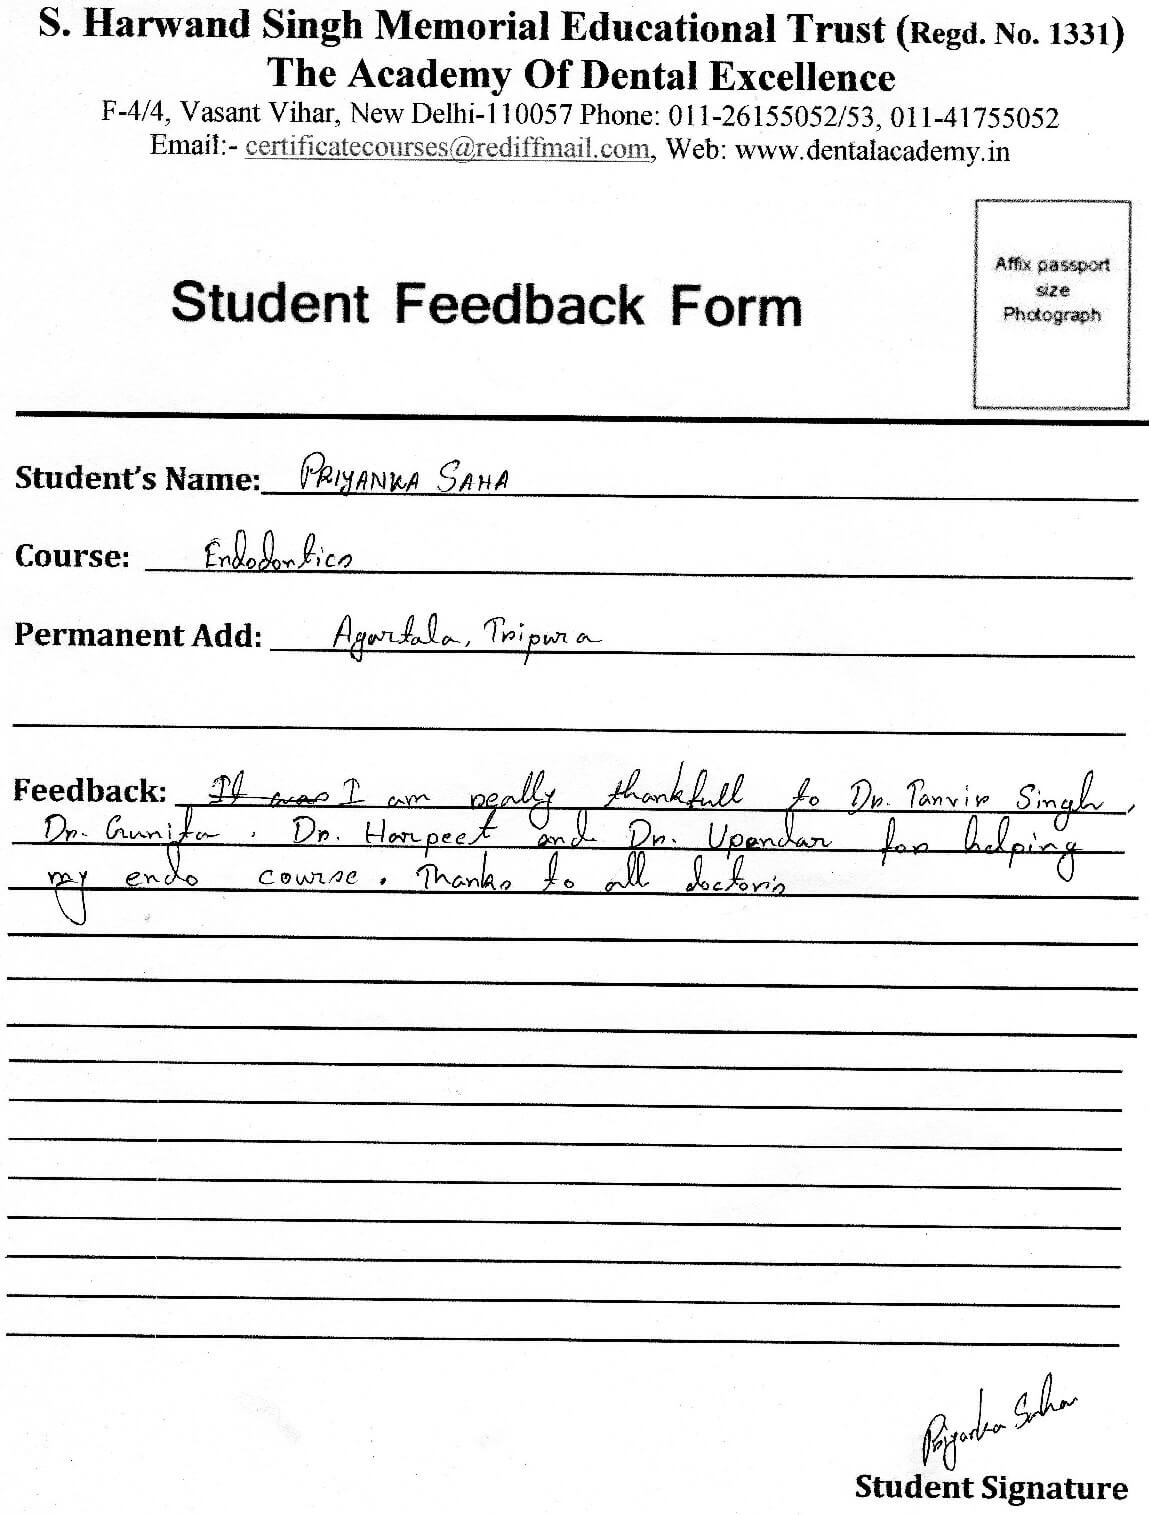 S. Harwand Singh Memorial Educational Trust (Regd. No. 1331)
The Academy Of Dental Excellence
F-4/4, Vasant Vihar, New Delhi-110057 Phone: 011-26155052/53, 011-41755052
Email:- certificatecourses@rediffmail.com, Web: www.dentalacademy.in
Affix passport
size
Photograph
Student Feedback Form
Student's Name: PRIYANKA SAHA
Course: Endodontics
Permanent Add: Agartala, Tripura
Feedback: It was I am really thankfull to Dr. Tanvir Singh,
Dr. Gunita, Dr. Harpeet and Dr. Upendar for helping
my endo course. Thanks to all doctors
Priyanka Saha
Student Signature